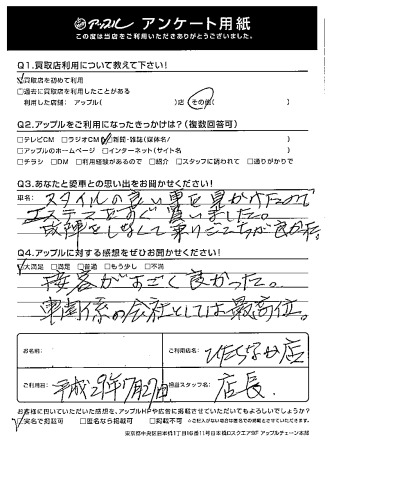 アップル アンケート用紙
この度は当店をご利用いただきありがとうございました。
Q1.買取店利用について教えて下さい!
□買取店を初めて利用
□過去に買取店を利用したことがある
利用した店舗: アップル( )店 その他( )
Q2.アップルをご利用になったきっかけは?(複数回答可)
□テレビCM □ラジオCM □新聞・雑誌(媒体名/ )
□アップルのホームページ □インターネット(サイト名 )
□チラシ □DM □利用経験があるので □紹介 □スタッフに誘われて □通りがかりで
Q3.あなたと愛車との思い出をお聞かせください!
車名: スタイルの良い車を見かけたので
エステマをすぐ買いました。
故障をしなくて乗りごこちが良かった。
Q4.アップルに対する感想をぜひお聞かせください!
□大満足 □満足 □普通 □もう少し □不満
接客がすごく良かった。
車関係の会社としては最高位。
お名前:
ご利用店名: ひたちなか店
ご利用日: 平成29年7月27日
担当スタッフ名: 店長
お客様に書いていただいた感想を、アップルHPや広告に掲載させていただいてもよろしいでしょうか?
□実名で掲載可 □匿名なら掲載可 □掲載不可 ※ご記入がない場合は匿名での掲載とさせていただきます。
東京都中央区日本橋1丁目16番11号日本橋Dスクエア9F アップルチェーン本部